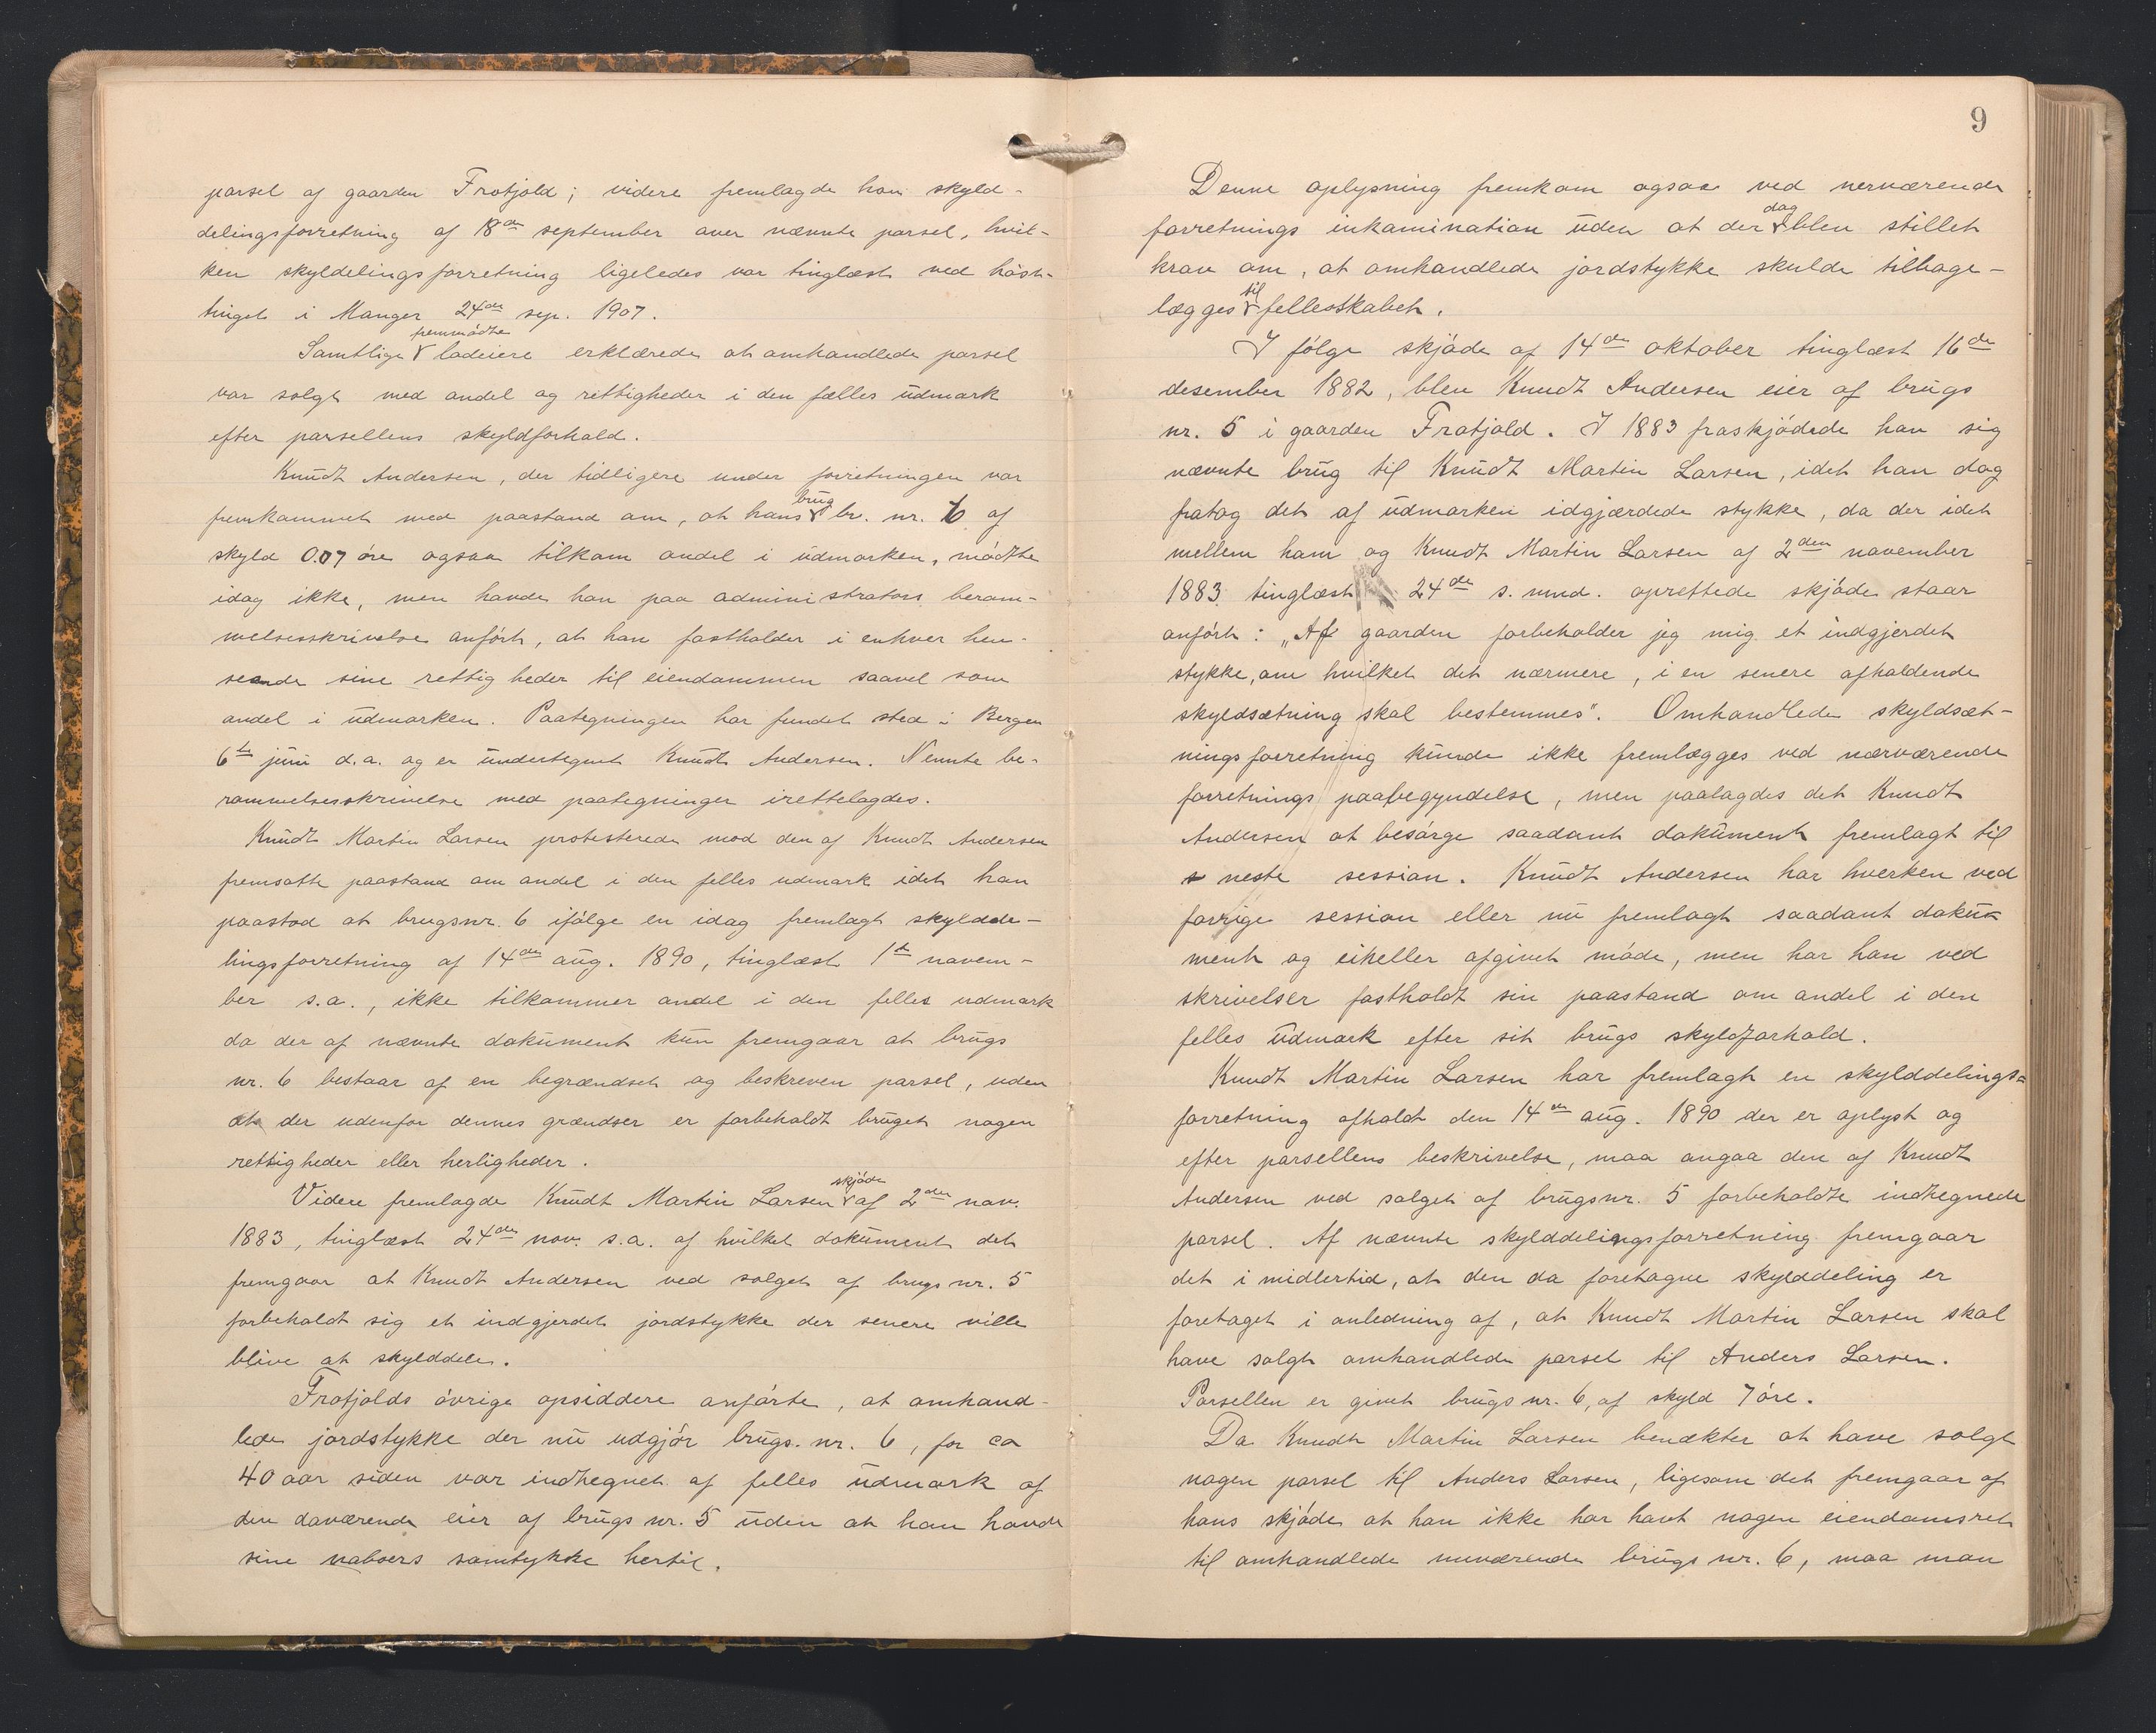 parsel af gaarden Frotjold; videre fremlagde han skyld-
delingsforretning af 18de september over nævnte parsel, hvil-
ken skyldelingsforretning ligeledes var tinglæst ved høst-
tinget i Manger 24de sep. 1907.
Samtlige fremmødte ladeiere erklærede at omhandlede parsel
var solgt med andel og rettigheder i den fælles udmark
efter parsellens skyldforhold.
Knudt Andersen, der tidligere under forretningen var
fremkommet med paastand om, at hans brug br. nr. 6 af
skyld 0.07 øre ogsaa tilkom andel i udmarken, mødte
idag ikke, men havde han paa administrators beram-
melsesskrivelse anført, at han fastholder i enhver hen-
seende sine rettigheder til eiendommen saavel som
andel i udmarken. Paategningen har fundet sted i Bergen
6te juni d.a. og er undertegnet Knudt Andersen. Nevnte be-
rammelsesskrivelse med paategninger irettelagdes.
Knudt Martin Larsen protesterede mod den af Knudt Andersen
fremsatte paastand om andel i den felles udmark idet han
paastod at brugsnr. 6 ifølge en idag fremlagt skyldde-
lingsforretning af 14de aug. 1890, tinglæst 1ste novem-
ber s.a., ikke tilkommer andel i den felles udmark
da der af nævnte dokument kun fremgaar at brugs
nr. 6 bestaar af en begrændset og beskreven parsel, uden
at der udenfor dennes grændser er forbeholdt bruget nogen
rettigheder eller herligheder.
Videre fremlagde Knudt Martin Larsen skjøde af 2den nov.
1883, tinglæst 24de nov. s.a. af hvilket dokument det
fremgaar at Knudt Andersen ved salget af brugs nr. 5
forbeholdt sig et indgjerdet jordstykke der senere ville
blive at skylddele.
Frotjolds øvrige opsiddere anførte, at omhand-
lede jordstykke der nu udgjør brugs. nr. 6, for ca
40 aar siden var indhegnet af felles udmark af
den daværende eier af brugs nr. 5 uden at han havde
sine naboers samtykke hertil.
9
Denne oplysning fremkom ogsaa ved nerværende
forretnings inkamination uden at der dog blev stillet
krav om, at omhandlede jordstykke skulde tilbage-
lægges til fellesskabet.
I følge skjøde af 14de oktober tinglæst 16de
desember 1882, blev Knudt Andersen eier af brugs
nr. 5 i gaarden Frotjold. I 1883 fraskjødede han sig
nævnte brug til Knudt Martin Larsen, idet han dog
fratog det af udmarken idgjærdede stykke, da der idet
mellem ham og Knudt Martin Larsen af 2den november
1883 tinglæst 24de s. mnd. oprettede skjøde staar
anført: „Af gaarden forbeholder jeg mig et indgjerdet
stykke, om hvilket det nærmere, i en senere afholdende
skyldsætning skal bestemmes". Omhandlede skyldsæt-
ningsforretning kunde ikke fremlægges ved nærværende
forretnings paabegyndelse, men paalagdes det Knudt
Andersen at besørge saadant dokument fremlagt til
neste session. Knudt Andersen har hverken ved
forrige session eller nu fremlagt saadant doku-
ment og eiheller afgivet møde, men har han ved
skrivelser fastholdt sin paastand om andel i den
felles udmark efter sit brugs skyldforhold.
Knudt Martin Larsen har fremlagt en skylddelings-
forretning afholdt den 14de aug. 1890 der er oplyst og
efter parsellens beskrivelse, maa angaa den af Knudt
Andersen ved salget af brugsnr. 5 forbeholdte indhegnede
parsel. Af nævnte skylddelingsforretning fremgaar
det i midlertid, at den da foretagne skylddeling er
foretaget i anledning af, at Knudt Martin Larsen skal
have solgt omhandlede parsel til Anders Larsen.
Parsellen er givet brugs nr. 6, af skyld 7 øre.
Da Knudt Martin Larsen benækter at have solgt
nogen parsel til Anders Larsen, ligesom det fremgaar af
hans skjøde at han ikke har havt nogen eiendomsret
til omhandlede nuværende brugs nr. 6, maa man